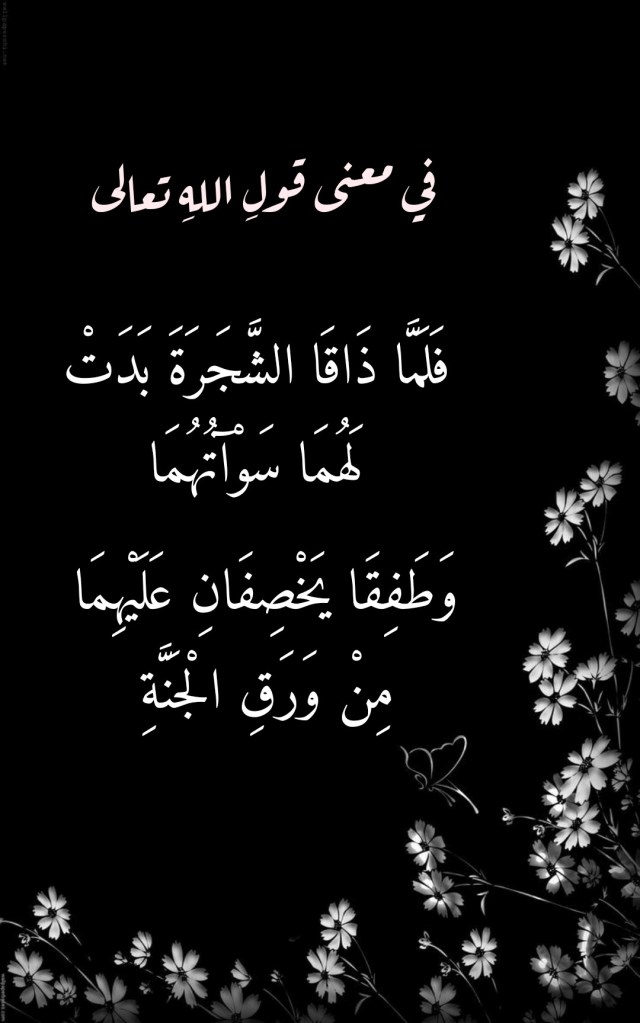 في معنى قولِ اللهِ تعالى
فَلَمَّا ذَاقَا الشَّجَرَةَ بَدَتْ
لَهُمَا سَوْآتُهُمَا
وَطَفِقَا يَخْصِفَانِ عَلَيْهِمَا
مِنْ وَرَقِ الْجَنَّةِ